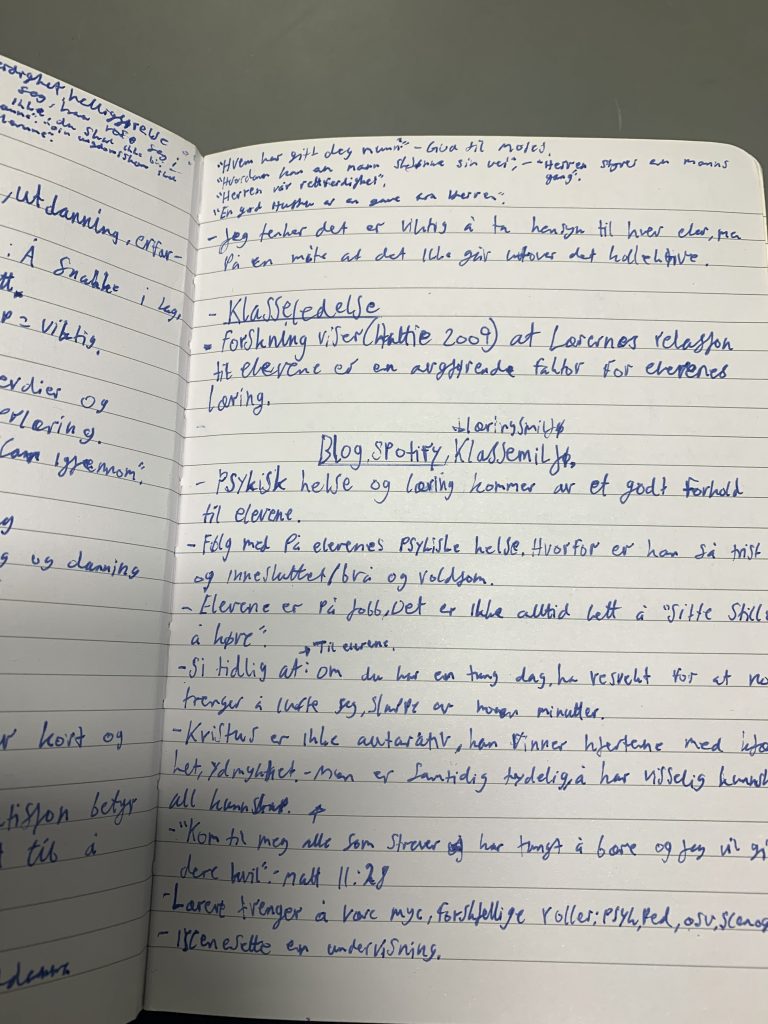 rdighet, helliggjørelse
seg, han
ikke, du skal ikke
, utdanning, erfar-
: Å snakke i lag,
tt.
P = viktig.
erdier og
erlæring.
igjennom".
g
g og danning
r kort og
tisjon betyr
t til å
"Hvem har gitt deg munn" - Gud til Moses.
"Hvordan kan en mann skjønne sin vei", - "Herren styrer en manns
gang".
"Herren vår rettferdighet".
"En god er en gave fra Herren".
- Jeg tenker det er viktig å ta hensyn til hver elev, men
på en måte at det ikke går utover det kollektive.
- Klasseledelse
- Forskning viser (Hattie 2009) at Lærernes relasjon
til elevene er en avgjørende faktor for elevenes
læring.
læringsmiljø
Blog, Spotify, Klassemiljø.
- Psykisk helse og læring kommer av et godt forhold
til elevene.
- Følg med på elevenes psykiske helse. Hvorfor er han så trist
og innesluttet/brå og voldsom.
- Elevene er på jobb, Det er ikke alltid lett å "sitte stille
å høre".
→ Til elevene.
- Si tidlig at: om du har en tung dag, ha respekt for at no
trenger å lufte seg, slappe av noen minutter.
- Kristus er ikke autoritativ, han vinner hjertene med
het, ydmykhet. - Men er samtidig tydelig, å har visselig kunnsk
all kunnskap.
- "Kom til meg alle som strever og har tungt å bære og jeg vil gi
dere hvil". - Matt 11:28
- Lærere trenger å være mye, forskjellige roller: Psyk, Ped, osv, Scenog
- iscenesette en undervisning.